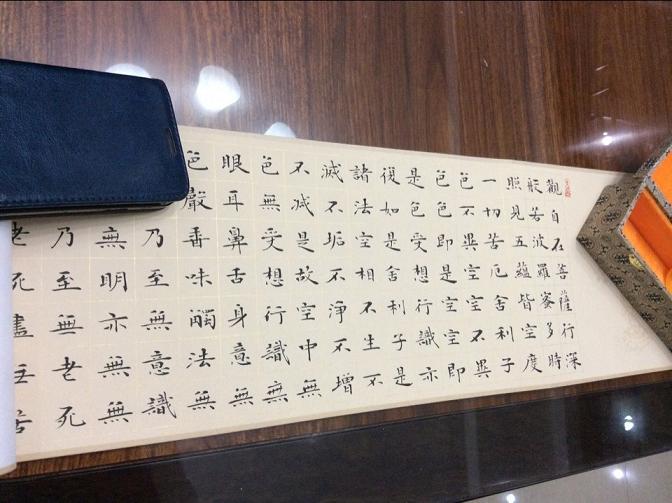 觀自在菩薩行深
般若波羅蜜多時
照見五蘊皆空度
一切苦厄舍利子
色不異空空不異
色色即是空空即
是色受想行識亦
復如是舍利子是
諸法空相不生不
滅不垢不淨不增
不減是故空中無
色無受想行識無
眼耳鼻舌身意無
色聲香味觸法無
乃至無意識
無明亦無無
乃至無老死
老死盡無苦